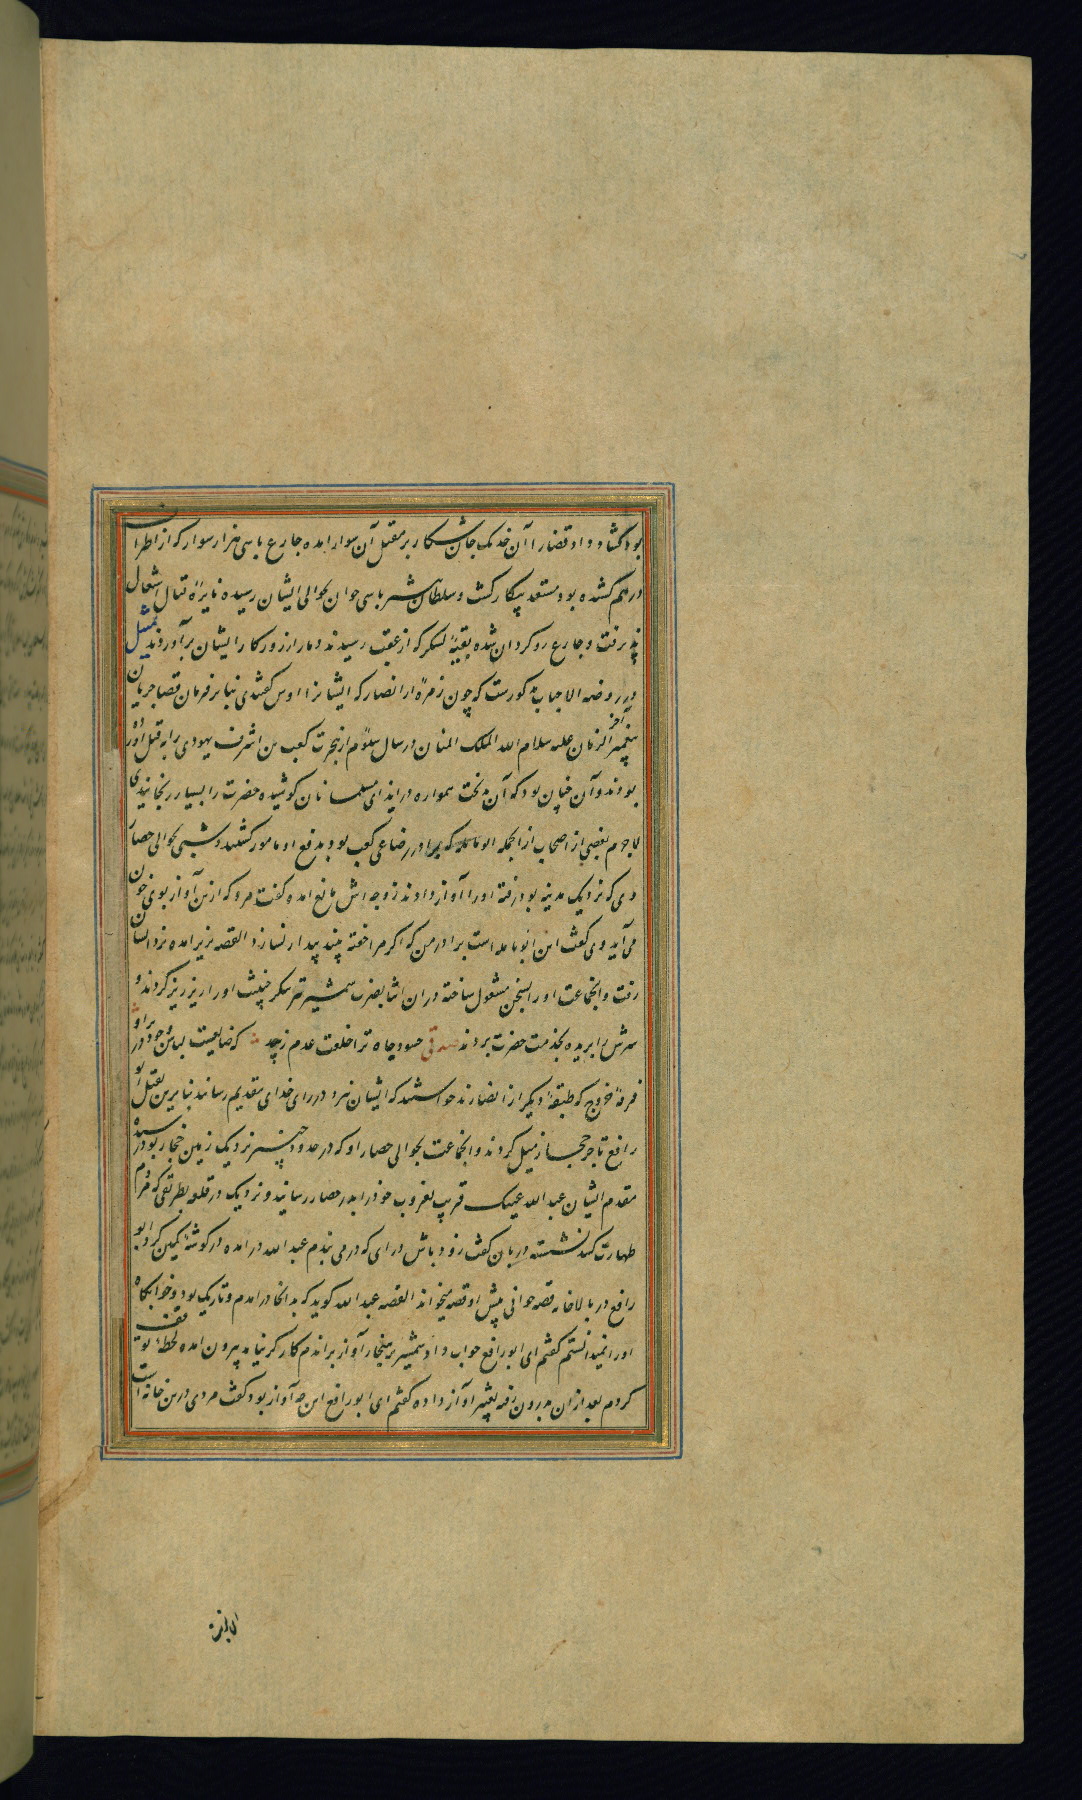 بود گشاد داد قضارا آن خدنگ جان شکار بر مقتل آن سوار امده جارع با سی هزار سوار که از اطراف
درهم کشده بود مستعد پیکار کشت و سلطان با سی جوان بحوالی ایشان رسیده نایره قتال اشتعال
پذیرفت و جارع روکردان شده بقیهٔ لشکر که از عقب رسیدند دمار از روزکار ایشان برآوردند تمثیل
در روضه الاحباب مذکورست که چون زمرهٔ از انصار که ایشانرا اوس کفتندی بنا بر فرمان قضا جریان
پیغمبر آخر الزمان علیه سلام الله الملک المنان در سال سوم از هجرت کعب بن اشرف یهودی را به قتل آورده
بودند و آن چنان بود که آن بدبخت همواره در ایذای مسلمانان کوشیده حضرت را بسیار رنجانیدی
لاجرم بعضی از اصحاب از انجمله ابو نایله که برادر رضاعی کعب بود بدفع او مامور کشتند و شبی بحوالی حصار
وی که نزدیک مدینه بود رفته او را آواز دادند زوجه اش مانع امده کفت مرو که ازین آواز بوی خون
می آید وی کفت این ابو نایله است برادر من که اکر مرا خفته بیند بیدار نسازد القصه بزیر امده نزد ایشان
رفت و انجماعت او را بسخن مشغول ساخته در ان اثنا بضرب شمشیر پیکر خبیث او را ریز ریز کردند و
سرش را بریده بخدمت حضرت بردند حسود جاه ترا خلعت عدم زیبد که ضایعست لباس وجود در بر او
فرقهٔ خزرج که طبقهٔ دیکر از انصارند خواستند که ایشان نیز در راه خدای تقدیم رسانند بنابرین بقتل ابو
رافع تاجر حجاز میل کردند و انجماعت بحوالی حصار او که در حدود خیبر نزدیک زمین حجاز بود رسیده
مقدم ایشان عبد الله عتیک قریب بغروب خود را بدر حصار رسانید و نزدیک در قلعه بطریقی که مردم
طهارت کنند نشسته دربان کفت زود باش درای که در می بندم عبد الله در امده در کوشهٔ کمین کرد ابو
رافع در بالاخانه قصه خوانی پیش او قصه میخواند القصه عبد الله کوید که بدانجا در امدم و تاریک بود و خوابکاه
او را نمیدانستم کفتم ای ابو رافع جواب داد شمشیر بر هنجار آواز براندم کارکر نیامد بیرون امده لحظهٔ توقف
کردم بعد از ان بدرون رفته تغییر آواز داده کفتم ای ابو رافع این چه آواز بود کفت مردی درین خانه است